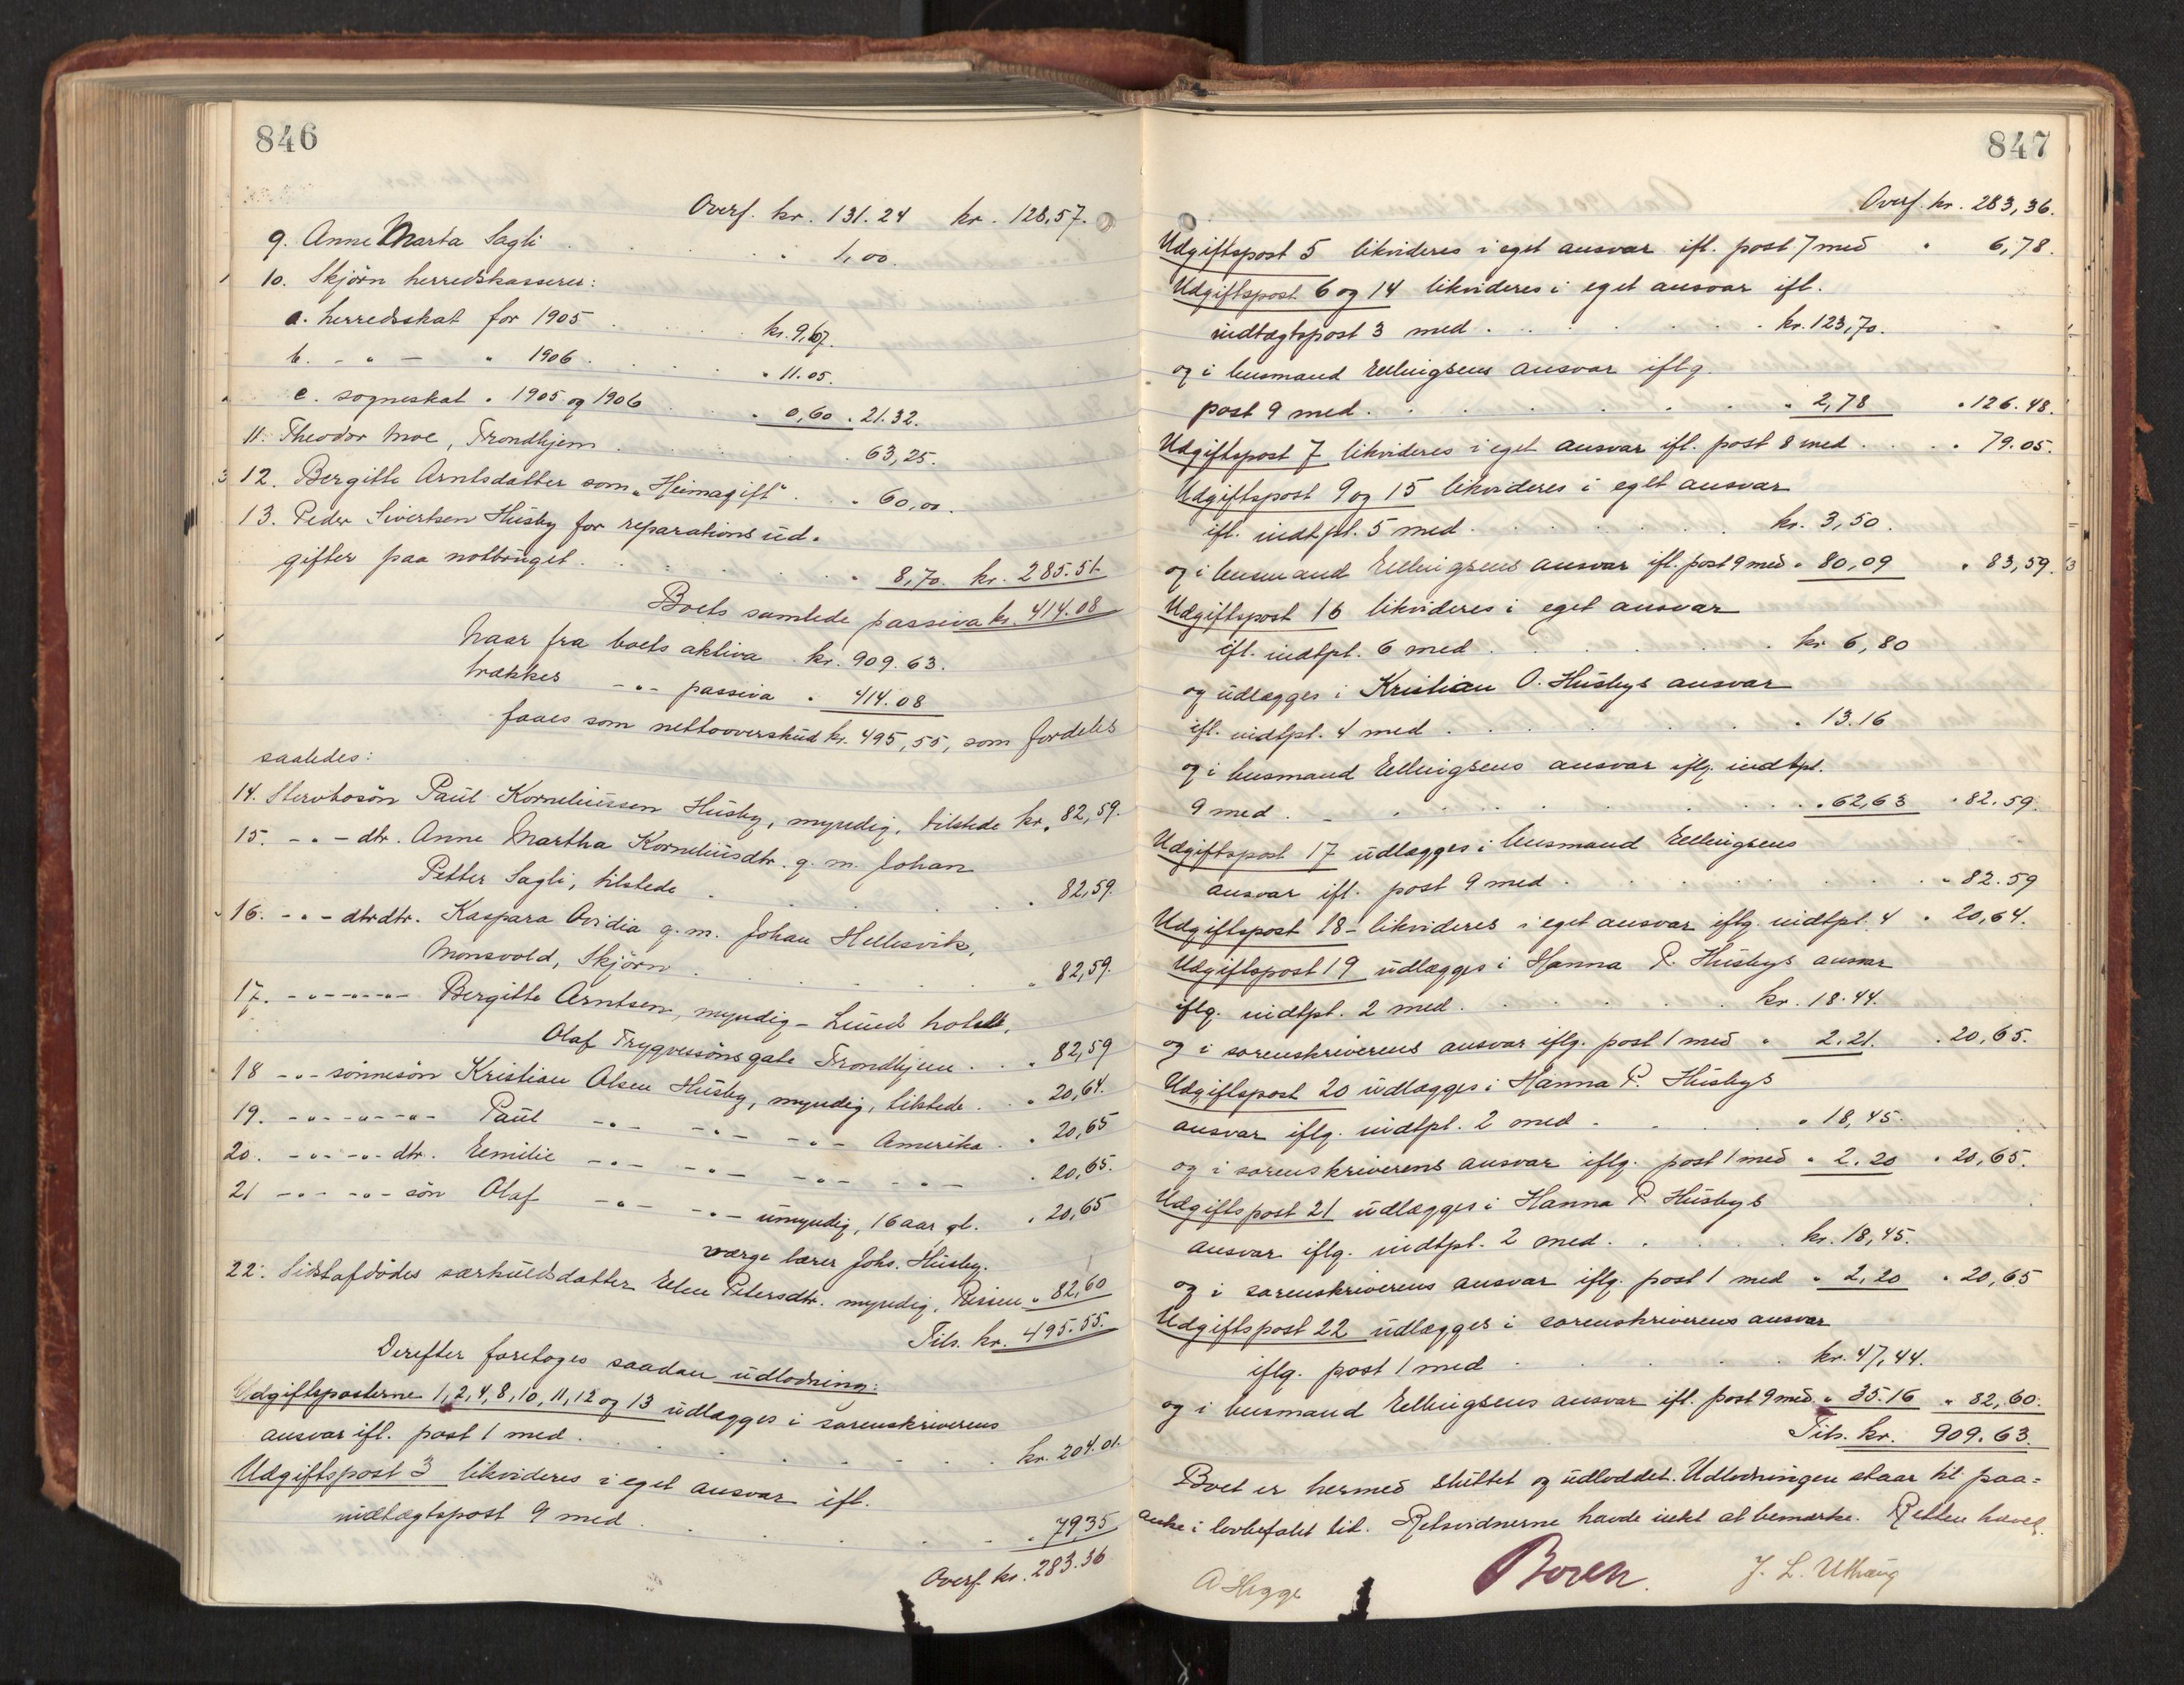 846
Overf. kr. 131.24 kr. 128,57.
9. Anne Marta Sagli . . . " 1,00.
10. Skjörn herredskasserer:
a. herredsskat for 1905 . . . kr. 9,67.
b. - " - " 1906 . . . " 11.05.
c. sogneskat " 1905 og 1906 . . " 0,60 " 21.32.
11. Theodor Moe, Trondhjem . . . " 63,25.
12. Bergitte Arntsdatter som „Heimagift" . . " 60,00.
13. Peder Sivertsen Husby for reparationsud-
gifter paa notbruget . . . " 8,70. kr. 285.51
Boets samlede passiva kr. 414.08
Naar fra boets aktiva kr. 909.63.
trækkes -"- passiva " 414.08
faaes som nettooverskud kr. 495,55, som fordeles
saaledes:
14. Stervbosön Paul Korneliussen Husby, myndig, tilstede kr. 82,59.
15. -"- dtr. Anne Martha Korneliusdtr. g. m. Johan
Petter Sagli, tilstede . . . " 82,59.
16. -"- dtrdtr. Kaspara Ovidia g. m. Johan Hellesvik,
Monsvold, Skjörn . . . " 82,59.
17. -"-"-"- Bergitte Arntsen, myndig - Lund hotell,
Olaf Trygvessönsgate Trondhjem . . " 82,59
18 -"- sönnesön Kristian Olsen Husby, myndig, tilstede . . " 20,64.
19. -"-"-"- Paul -"- -"- -"- Amerika . " 20,65
20. -"- -"- dtr. Emilie -"- -"- -"- -"- " 20,65.
21 -"- -"- sön Olaf -"- -"- umyndig, 16 aar gl. " 20,65
værge lærer Johs. Husby.
22. Sidstafdödes særkuldsdatter Elen Petersdtr. myndig, Rissen " 82,60
Tils. kr. 495.55.
Derefter foretoges saadan udlodning:
Udgiftsposterne 1, 2, 4, 8, 10, 11, 12 og 13 udlægges i sorenskriverens
ansvar ifl. post 1 med . . . kr. 204.01.
Udgiftspost 3 likvideres i eget ansvar ifl.
indtægtspost 9 med . . . " 79 35
Overf. kr. 283.36
847
Overf. kr. 283,36.
Udgiftspost 5 likvideres i eget ansvar ifl. post 7 med " 6,78.
Udgiftspost 6 og 14 likvideres i eget ansvar ifl.
indtægtspost 3 med . . . kr. 123,70.
og i husmand Ellingsens ansvar iflg.
post 9 med . . . " 2,78 " 126.48.
Udgiftspost 7 likvideres i eget ansvar ifl. post 8 med . . " 79.05.
Udgiftspost 9 og 15 likvideres i eget ansvar
ifl. indtpt. 5 med . . . kr. 3,50.
og i husmand Ellingsens ansvar ifl. post 9 med " 80,09 " 83,59.
Udgiftspost 16 likvideres i eget ansvar
ifl. indtpt. 6 med . . . kr. 6,80
og udlægges i Kristian O. Husbys ansvar
ifl. indtpt. 4 med . . . " 13.16
og i husmand Ellingsens ansvar iflg. indtpt.
9 med . . . " 62,63 " 82.59.
Udgiftspost 17 udlægges i husmand Ellingsens
ansvar ifl. post 9 med . . . " 82.59
Udgiftspost 18 - likvideres i eget ansvar iflg. indtpt. 4 " 20,64.
Udgiftspost 19 udlægges i Hanna P. Husbys ansvar
iflg. indtpt. 2 med . . . kr. 18.44.
og i sorenskriverens ansvar iflg. post 1 med " 2.21. " 20,65.
Udgiftspost 20 udlægges i Hanna P. Husbys
ansvar iflg. indtpt. 2 med . . . " 18,45.
og i sorenskriverens ansvar iflg. post 1 med " 2.20 " 20,65.
Udgiftspost 21 udlægges i Hanna P. Husbys
ansvar iflg. indtpt. 2 med . . . kr. 18,45.
og i sorenskriverens ansvar iflg. post 1 med " 2,20 " 20,65
Udgiftspost 22 udlægges i sorenskriverens ansvar
iflg. post 1 med . . . kr. 47,44.
og i husmand Ellingsens ansvar ifl. post 9 med " 35.16 " 82,60.
Tils. kr. 909.63.
Boet er hermed sluttet og udloddet. Udlodningen staar til paa-
anke i lovbefalet tid. Retsvidnerne havde intet at bemærke. Retten hævet.
A Hegge Boren. J. L. Uthaug